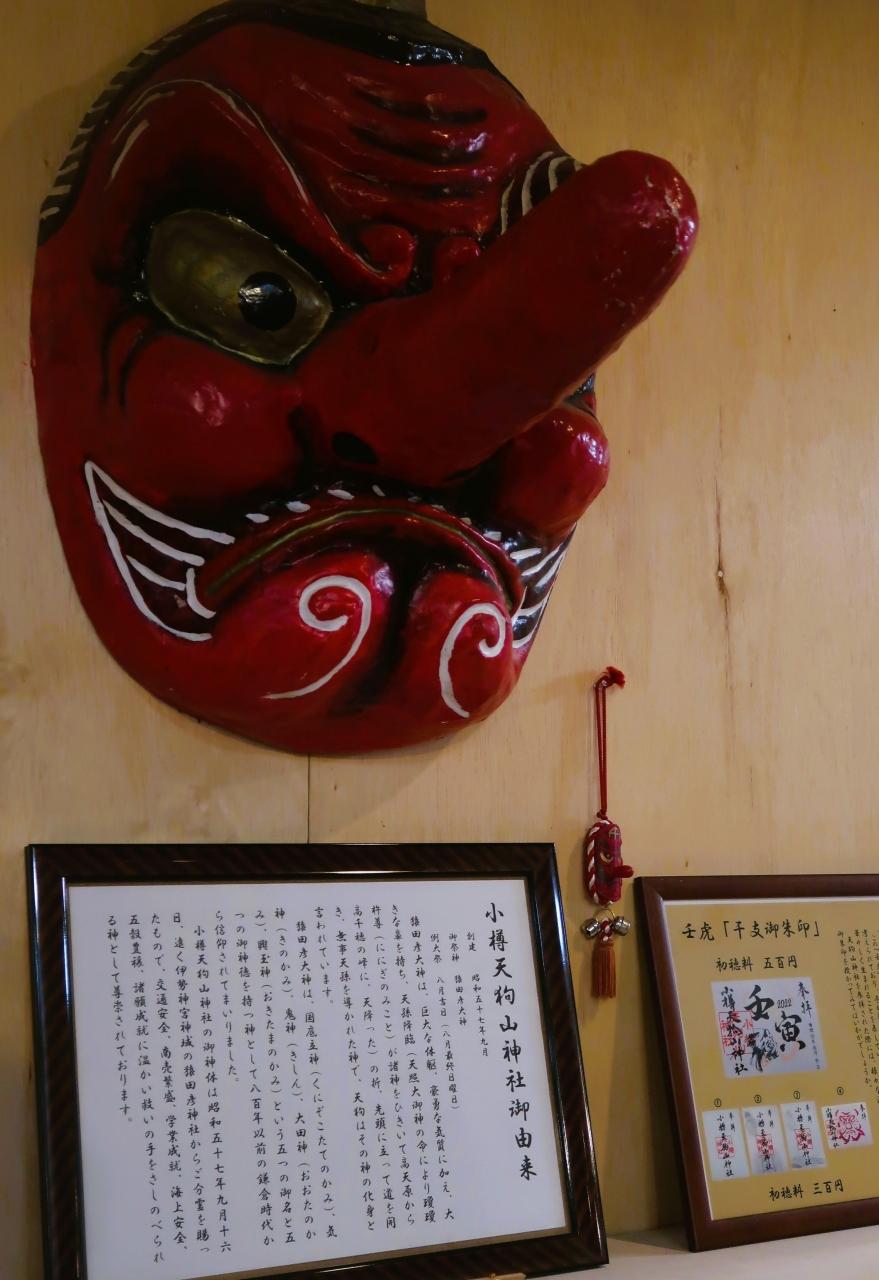 小樽天狗山神社御由来
創建　昭和五十七年九月
御祭神　猿田彦大神
例大祭　八月吉日（八月最終日曜日）
猿田彦大神は、巨大な体躯、豪勇な気質に加え、大
きな鼻を持ち、天孫降臨（天照大御神の命により瓊瓊
杵尊（ににぎのみこと）が諸神をひきいて高天原から
高千穂の峰に、天降った）の折、先頭に立って道を開
き、無事天孫を導かれた神で、天狗はその神の化身と
言われています。
猿田彦大神は、国底立神（くにぞこたてのかみ）、気
神（きのかみ）、鬼神（きしん）、大田神（おおたのか
み）、興玉神（おきたまのかみ）という五つの御名と五
つの御神徳を持つ神として八百年以前の鎌倉時代か
ら信仰されてまいりました。
小樽天狗山神社の御神体は昭和五十七年九月十六
日、遠く伊勢神宮神域の猿田彦神社からご分霊を賜っ
たもので、交通安全、商売繁盛、学業成就、海上安全、
五穀豊穣、諸願成就に温かい救いの手をさしのべられ
る神として尊崇されております。
壬虎「干支御朱印」
初穂料 五百円
奉拝
2022
壬寅
小樽天狗山神社
① ② ③ ④
奉拝
小樽天狗山神社
奉拝
小樽天狗山神社
奉拝
小樽天狗山神社
奉拝
小樽天狗山神社
初穂料 三百円